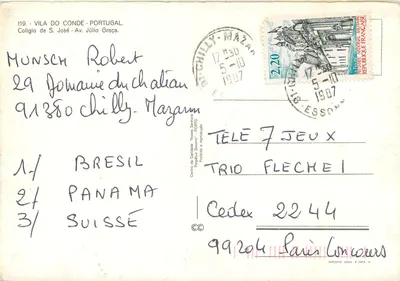 119. - VILA DO CONDE - PORTUGAL.
Colégio de S. José - Av. Júlio Graça.
MUNSCH Robert
29 Domaine du chateau
91380 Chilly. Mazarin
1/ BRESIL
2/ PANAMA
3/ SUISSE
CHILLY-MAZAR
17-30
5-10
1987
91-ESSONNE
2,20
RÉPUBLIQUE FRANÇAISE
17-30
5-10
1987
91-ESSONNE
TELE 7 JEUX
TRIO FLECHE 1
Cedex 2244
99204 Paris Concours